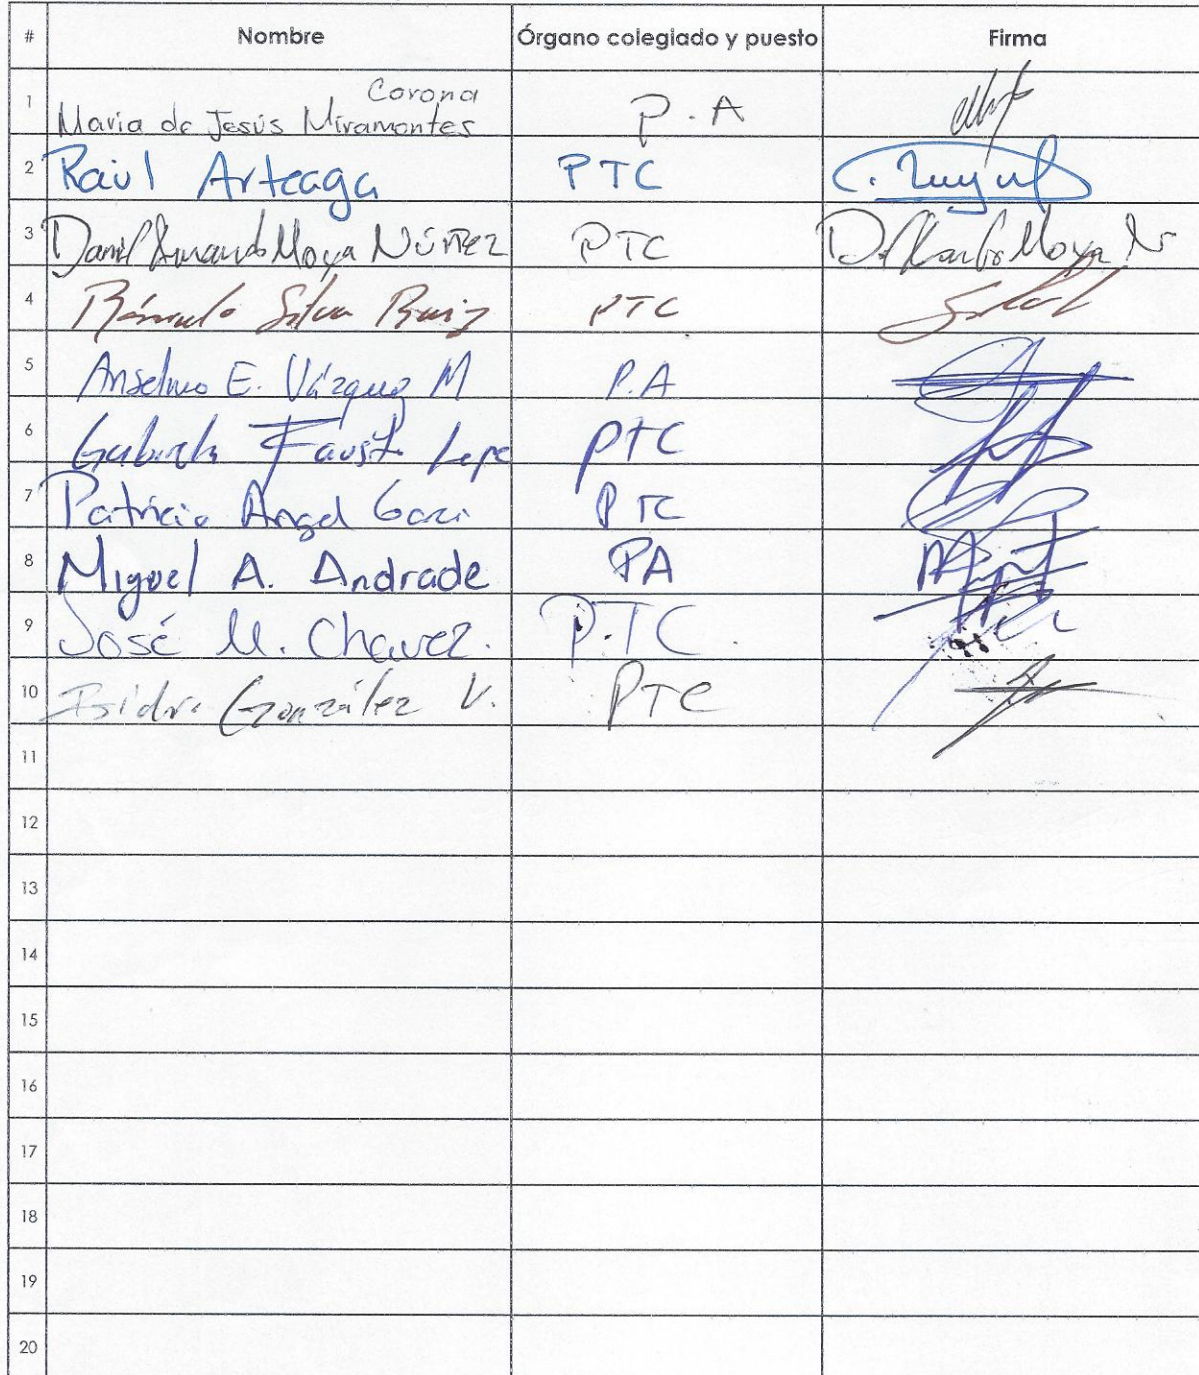 # Nombre Órgano colegiado y puesto Firma
Corona
1 Maria de Jesús Miramontes P.A
2 Raúl Arteaga PTC
3 Daniel Armando Moya Núñez PTC
4 Rómulo Silva Ruiz PTC
5 Anselmo E. Vázquez M P.A
6 Gabriela Fausto Lepe PTC
7 Patricia Angel PTC
8 Miguel A. Andrade PA
9 José M. Chavez. P.TC.
10 Isidro González V. PTC
11
12
13
14
15
16
17
18
19
20